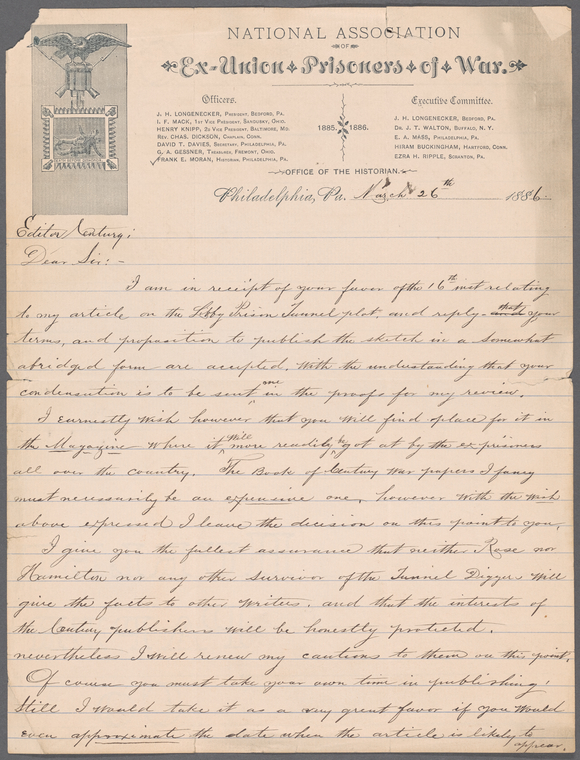 NATIONAL ASSOCIATION
OF
Ex-Union Prisoners of War.
Officers.
J. H. LONGENECKER, PRESIDENT, BEDFORD, PA.
I. F. MACK, 1ST VICE PRESIDENT, SANDUSKY, OHIO.
HENRY KNIPP, 2D VICE PRESIDENT, BALTIMORE, MD.
REV. CHAS. DICKSON, CHAPLAIN, CONN.
DAVID T. DAVIES, SECRETARY, PHILADELPHIA, PA.
G. A. GESSNER, TREASURER, FREMONT, OHIO.
FRANK E. MORAN, HISTORIAN, PHILADELPHIA, PA.
1885. 1886.
Executive Committee.
J. H. LONGENECKER, BEDFORD, PA.
DR. J. T. WALTON, BUFFALO, N. Y.
E. A. MASS, PHILADELPHIA, PA.
HIRAM BUCKINGHAM, HARTFORD, CONN.
EZRA H. RIPPLE, SCRANTON, PA.
OFFICE OF THE HISTORIAN.
Philadelphia, Pa. March 26th 1886.
Editor Century;
Dear Sir:-
I am in receipt of your favor of the 16th inst relating
to my article on the Libby Prison Tunnel plot and reply that your
terms, and proposition to publish the sketch in a somewhat
abridged form are accepted. With the understanding that your
condensation is to be sent me in the proofs for my review.
I earnestly wish however that you will find a place for it in
the Magazine where it will more readily be got at by the ex-prisoners
all over the country. The Book of Century war papers I fancy
must necessarily be an expensive one, however with the wish
above expressed I leave the decision on this point to you.
I give you the fullest assurance that neither Rose nor
Hamilton nor any other survivor of the Tunnel Diggers will
give the facts to other writers. and that the interests of
the Century publishers will be honestly protected.
nevertheless I will renew my cautions to them on this point.
Of course you must take your own time in publishing!
Still I would take it as a very great favor if you would
even approximate the date when the article is likely to
appear.